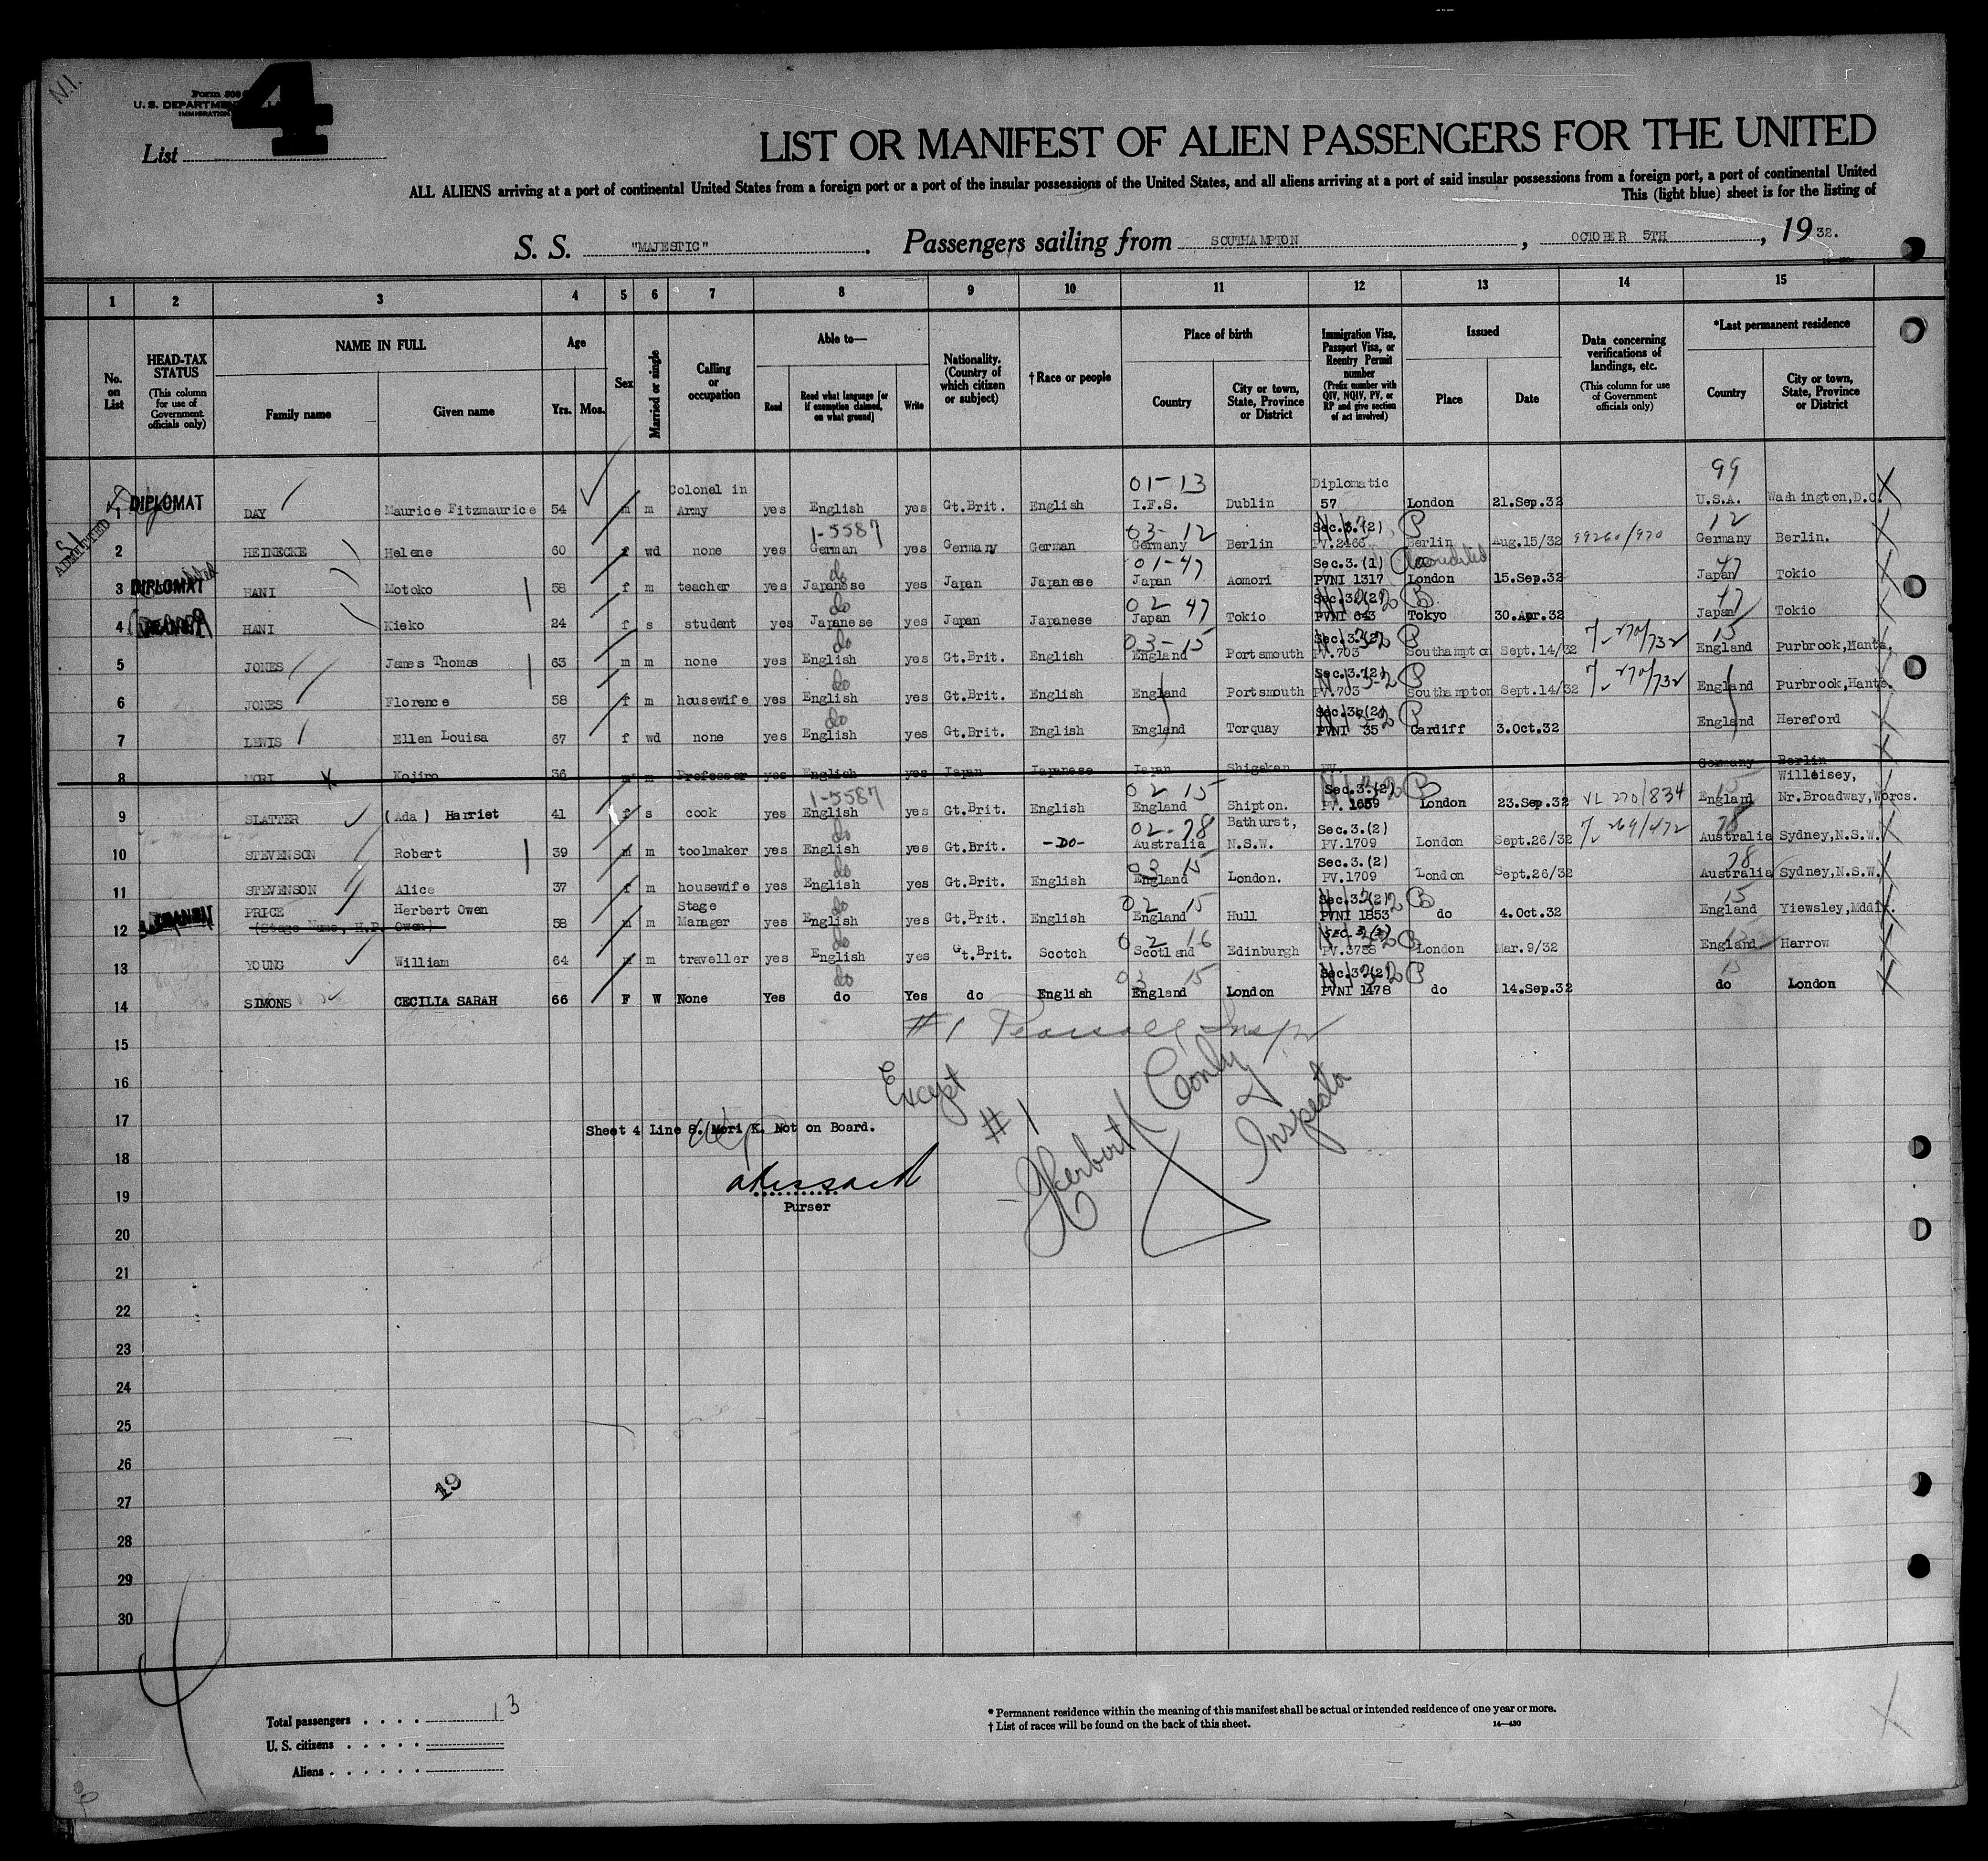 N.I.
Form 500
U. S. DEPARTMENT
IMMIGRATION
4
List
LIST OR MANIFEST OF ALIEN PASSENGERS FOR THE UNITED
ALL ALIENS arriving at a port of continental United States from a foreign port or a port of the insular possessions of the United States, and all aliens arriving at a port of said insular possessions from a foreign port, a port of continental United
This (light blue) sheet is for the listing of
S. S. "MAJESTIC". Passengers sailing from SOUTHAMPTON, OCTOBER 5TH, 1932.
1 2 3 4 5 6 7 8 9 10 11 12 13 14 15
No. on List
HEAD-TAX STATUS (This column for use of Government officials only)
NAME IN FULL
Family name
Given name
Age
Yrs. Mos.
Sex
Married or single
Calling or occupation
Able to—
Read
Read what language [or if exemption claimed, on what ground]
Write
Nationality. (Country of which citizen or subject)
† Race or people
Place of birth
Country
City or town, State, Province or District
Immigration Visa, Passport Visa, or Reentry Permit number (Prefix number with QIV, NQIV, PV, or RP and give section of act involved)
Issued
Place
Date
Data concerning verifications of landings, etc. (This column for use of Government officials only)
*Last permanent residence
Country
City or town, State, Province or District
ADMITTED
1 DIPLOMAT DAY Maurice Fitzmaurice 54 m m Colonel in Army yes English yes Gt.Brit. English 01-13 I.F.S. Dublin Diplomatic 57 London 21.Sep.32 99 U.S.A. Washington,D.C.
2 HEINECKE Helene 60 f wd none yes 1-5587 German yes Germany German 03-12 Germany Berlin Sec.3.(2) PV.2466 Berlin Aug.15/32 99260/970 12 Germany Berlin.
3 DIPLOMAT HANI Motoko 58 f m teacher yes do Japanese yes Japan Japanese 01-47 Japan Aomori Sec.3.(1) PVNI 1317 Accredited London 15.Sep.32 47 Japan Tokio
4 HANI Kieko 24 f s student yes do Japanese yes Japan Japanese 02 47 Japan Tokio Sec.3.(2) PVNI 643 Tokyo 30.Apr.32 47 Japan Tokio
5 JONES James Thomas 63 m m none yes do English yes Gt.Brit. English 03-15 England Portsmouth Sec.3.(2) PV.703 Southampton Sept.14/32 270/732 15 England Purbrook,Hants.
6 JONES Florence 58 f m housewife yes do English yes Gt.Brit. English England Portsmouth Sec.3.(2) PV.703 Southampton Sept.14/32 270/732 England Purbrook,Hants.
7 LEWIS Ellen Louisa 67 f wd none yes do English yes Gt.Brit. English England Torquay Sec.3.(2) PVNI 35 Cardiff 3.Oct.32 England Hereford
8 MORI Kojiro 36 m m Professor yes English yes Japan Japanese Japan Shigaken PV. Germany Berlin
9 SLATTER (Ada) Harriet 41 f s cook yes 1-5587 English yes Gt.Brit. English 02 15 England Shipton. Sec.3.(2) PV. 1659 London 23.Sep.32 VL 270/834 15 England Willeisey, Nr.Broadway,Worcs.
10 STEVENSON Robert 39 m m toolmaker yes do English yes Gt.Brit. -DO- 02-78 Australia Bathurst, N.S.W. Sec.3.(2) PV.1709 London Sept.26/32 269/472 78 Australia Sydney,N.S.W.
11 STEVENSON Alice 37 f m housewife yes do English yes Gt.Brit. English 03 15 England London. Sec.3.(2) PV.1709 London Sept.26/32 78 Australia Sydney,N.S.W.
12 TRANSIT PRICE (Stage Name, H.P. Owen) Herbert Owen 58 m m Stage Manager yes do English yes Gt.Brit. English 02 15 England Hull Sec.3.(2) PVNI 1853 do 4.Oct.32 15 England Yiewsley,Mddlx.
13 YOUNG William 64 m m traveller yes do English yes Gt.Brit. Scotch 02 16 Scotland Edinburgh PV.3788 London Mar.9/32 England Harrow
14 SIMONS CECILIA SARAH 66 F W None Yes do do Yes do English 03 15 England London Sec.3.(2) PVNI 1478 do 14.Sep.32 15 do London
15
#1 Insp
16
Except #1
Herbert Conly
Inspector
17
Sheet 4 Line 8. Mori K. Not on Board.
18
19
Purser
20
21
22
23
24
25
26
27
19
28
29
30
Total passengers . . . . 13
U. S. citizens . . . . .
Aliens . . . . . .
* Permanent residence within the meaning of this manifest shall be actual or intended residence of one year or more.
† List of races will be found on the back of this sheet. 14—430